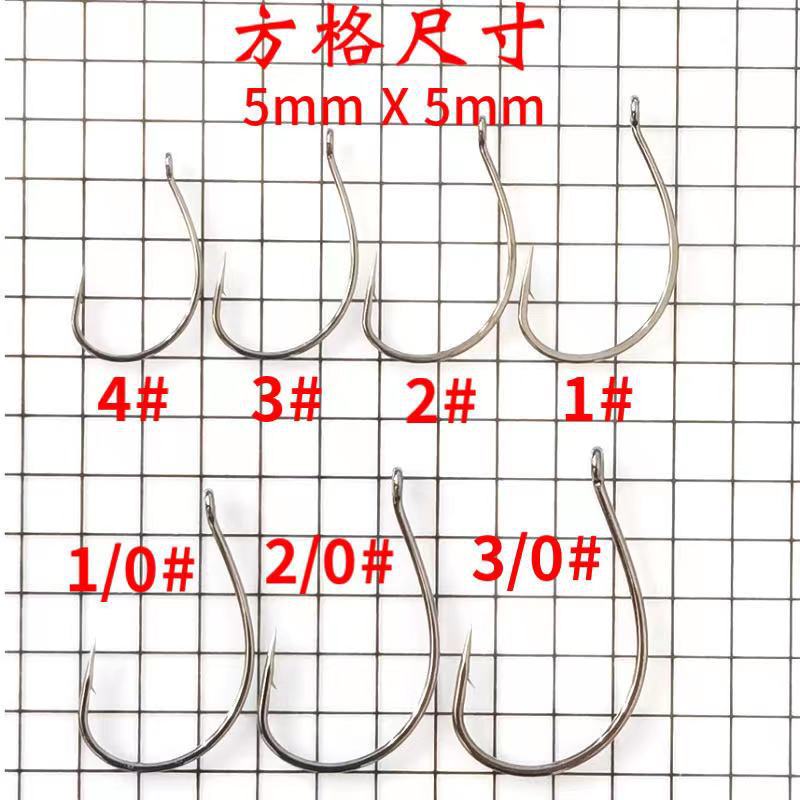 方格尺寸
5mm X 5mm
4# 3# 2# 1#
1/0# 2/0# 3/0#